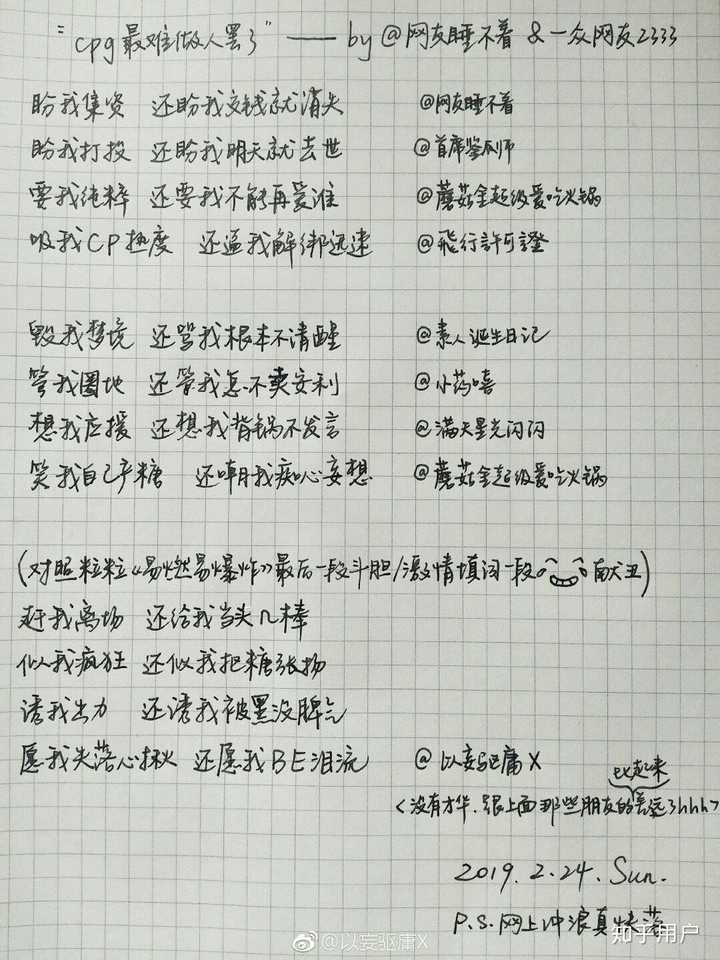 "cpg最难做人罢了" —— by @网友睡不着 & 一众网友2333
盼我集资 还盼我交钱就消失 @网友睡不着
盼我打投 还盼我明天就去世 @首席鉴瓜师
要我纯粹 还要我不能再爱谁 @蘑菇金超级爱吃火锅
吸我CP热度 还逼我解绑迅速 @飛行許可證
毁我梦境 还骂我根本不清醒 @素人诞生日记
管我圈地 还管我怎不卖安利 @小药嘻
想我应援 还想我背锅不发言 @满天星光闪闪
笑我自己产糖 还嘲我痴心妄想 @蘑菇金超级爱吃火锅
(对照粒粒《易燃易爆炸》最后一段斗胆/激情填词一段 献丑)
赶我离场 还给我当头几棒
似我疯狂 还似我把糖张扬
诱我出力 还诱我被黑没脾气
愿我失落心揪 还愿我BE泪流 @以妄驱庸X
比起来
<没有才华,跟上面那些朋友的差远了hhh>
2019.2.24.Sun.
P.S.网上冲浪真快落
@以妄驱庸X
知乎用户